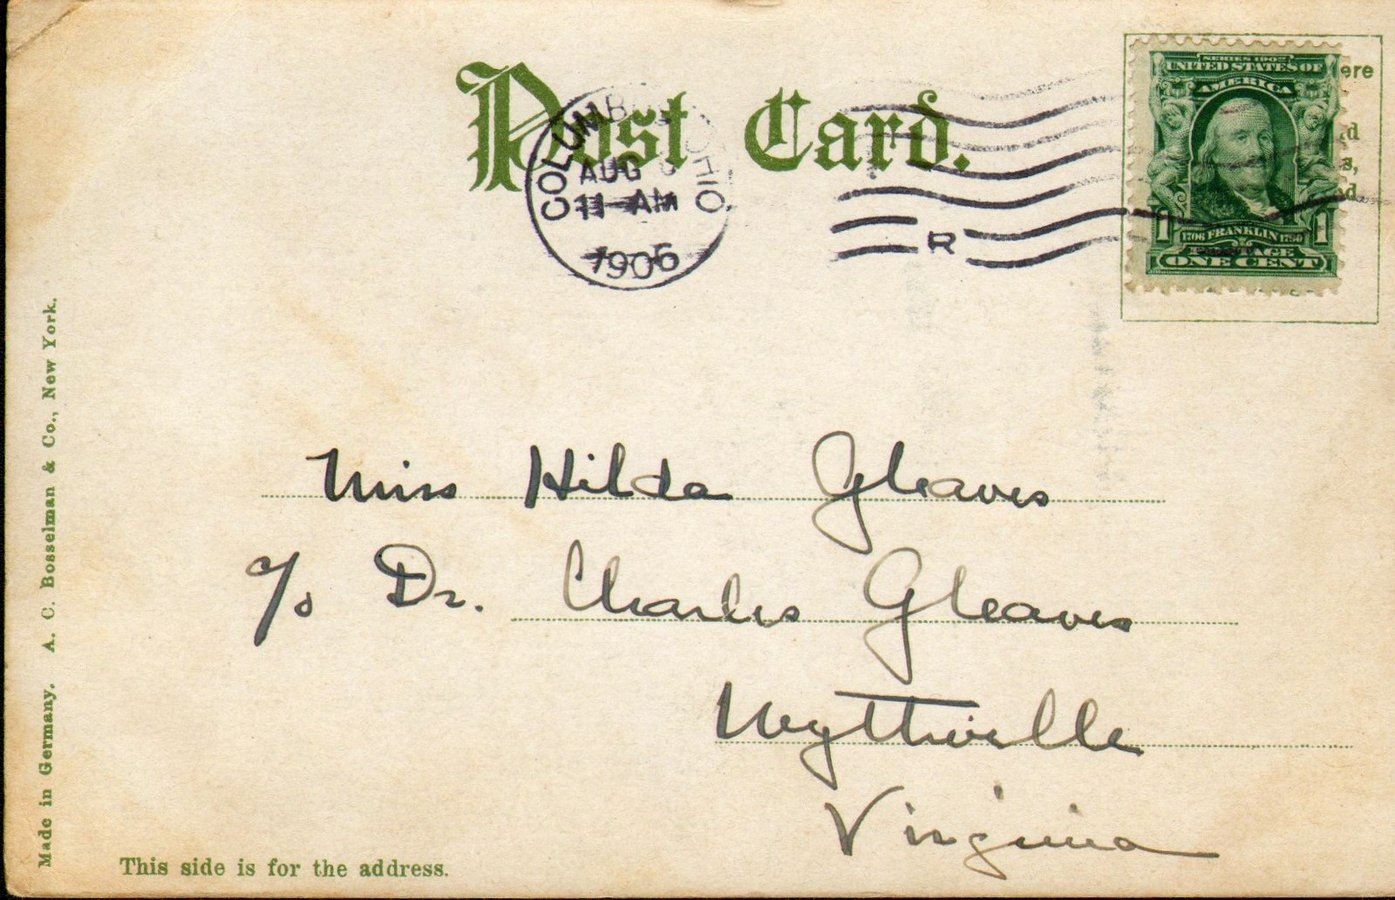 Post Card.
COLUMBUS OHIO
AUG
11 AM
1906
R
SERIES 1902
UNITED STATES OF
AMERICA
1706 FRANKLIN 1790
POSTAGE
1 ONE CENT 1
Miss Hilda Gleaves
c/o Dr. Charles Gleaves
Wytheville
Virginia
This side is for the address.
Made in Germany. A. C. Bosselman & Co., New York.